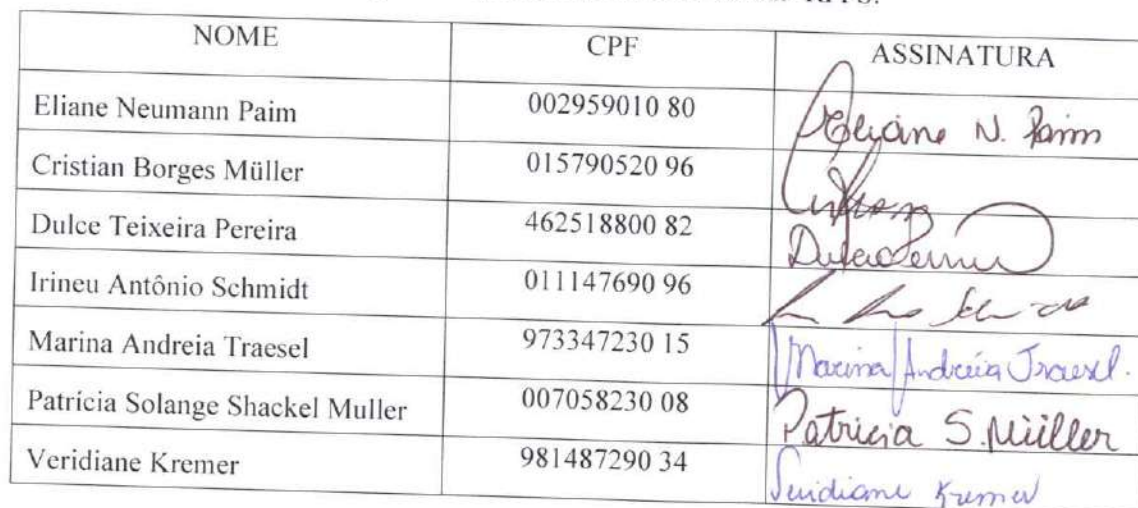 RPPS.
NOME CPF ASSINATURA
Eliane Neumann Paim 002959010 80 Eliane N. Paim
Cristian Borges Müller 015790520 96
Dulce Teixeira Pereira 462518800 82
Irineu Antônio Schmidt 011147690 96
Marina Andreia Traesel 973347230 15 Marina Andreia Traesel.
Patrícia Solange Shackel Muller 007058230 08 Patricia S. Müller
Veridiane Kremer 981487290 34 Veridiane Kremer